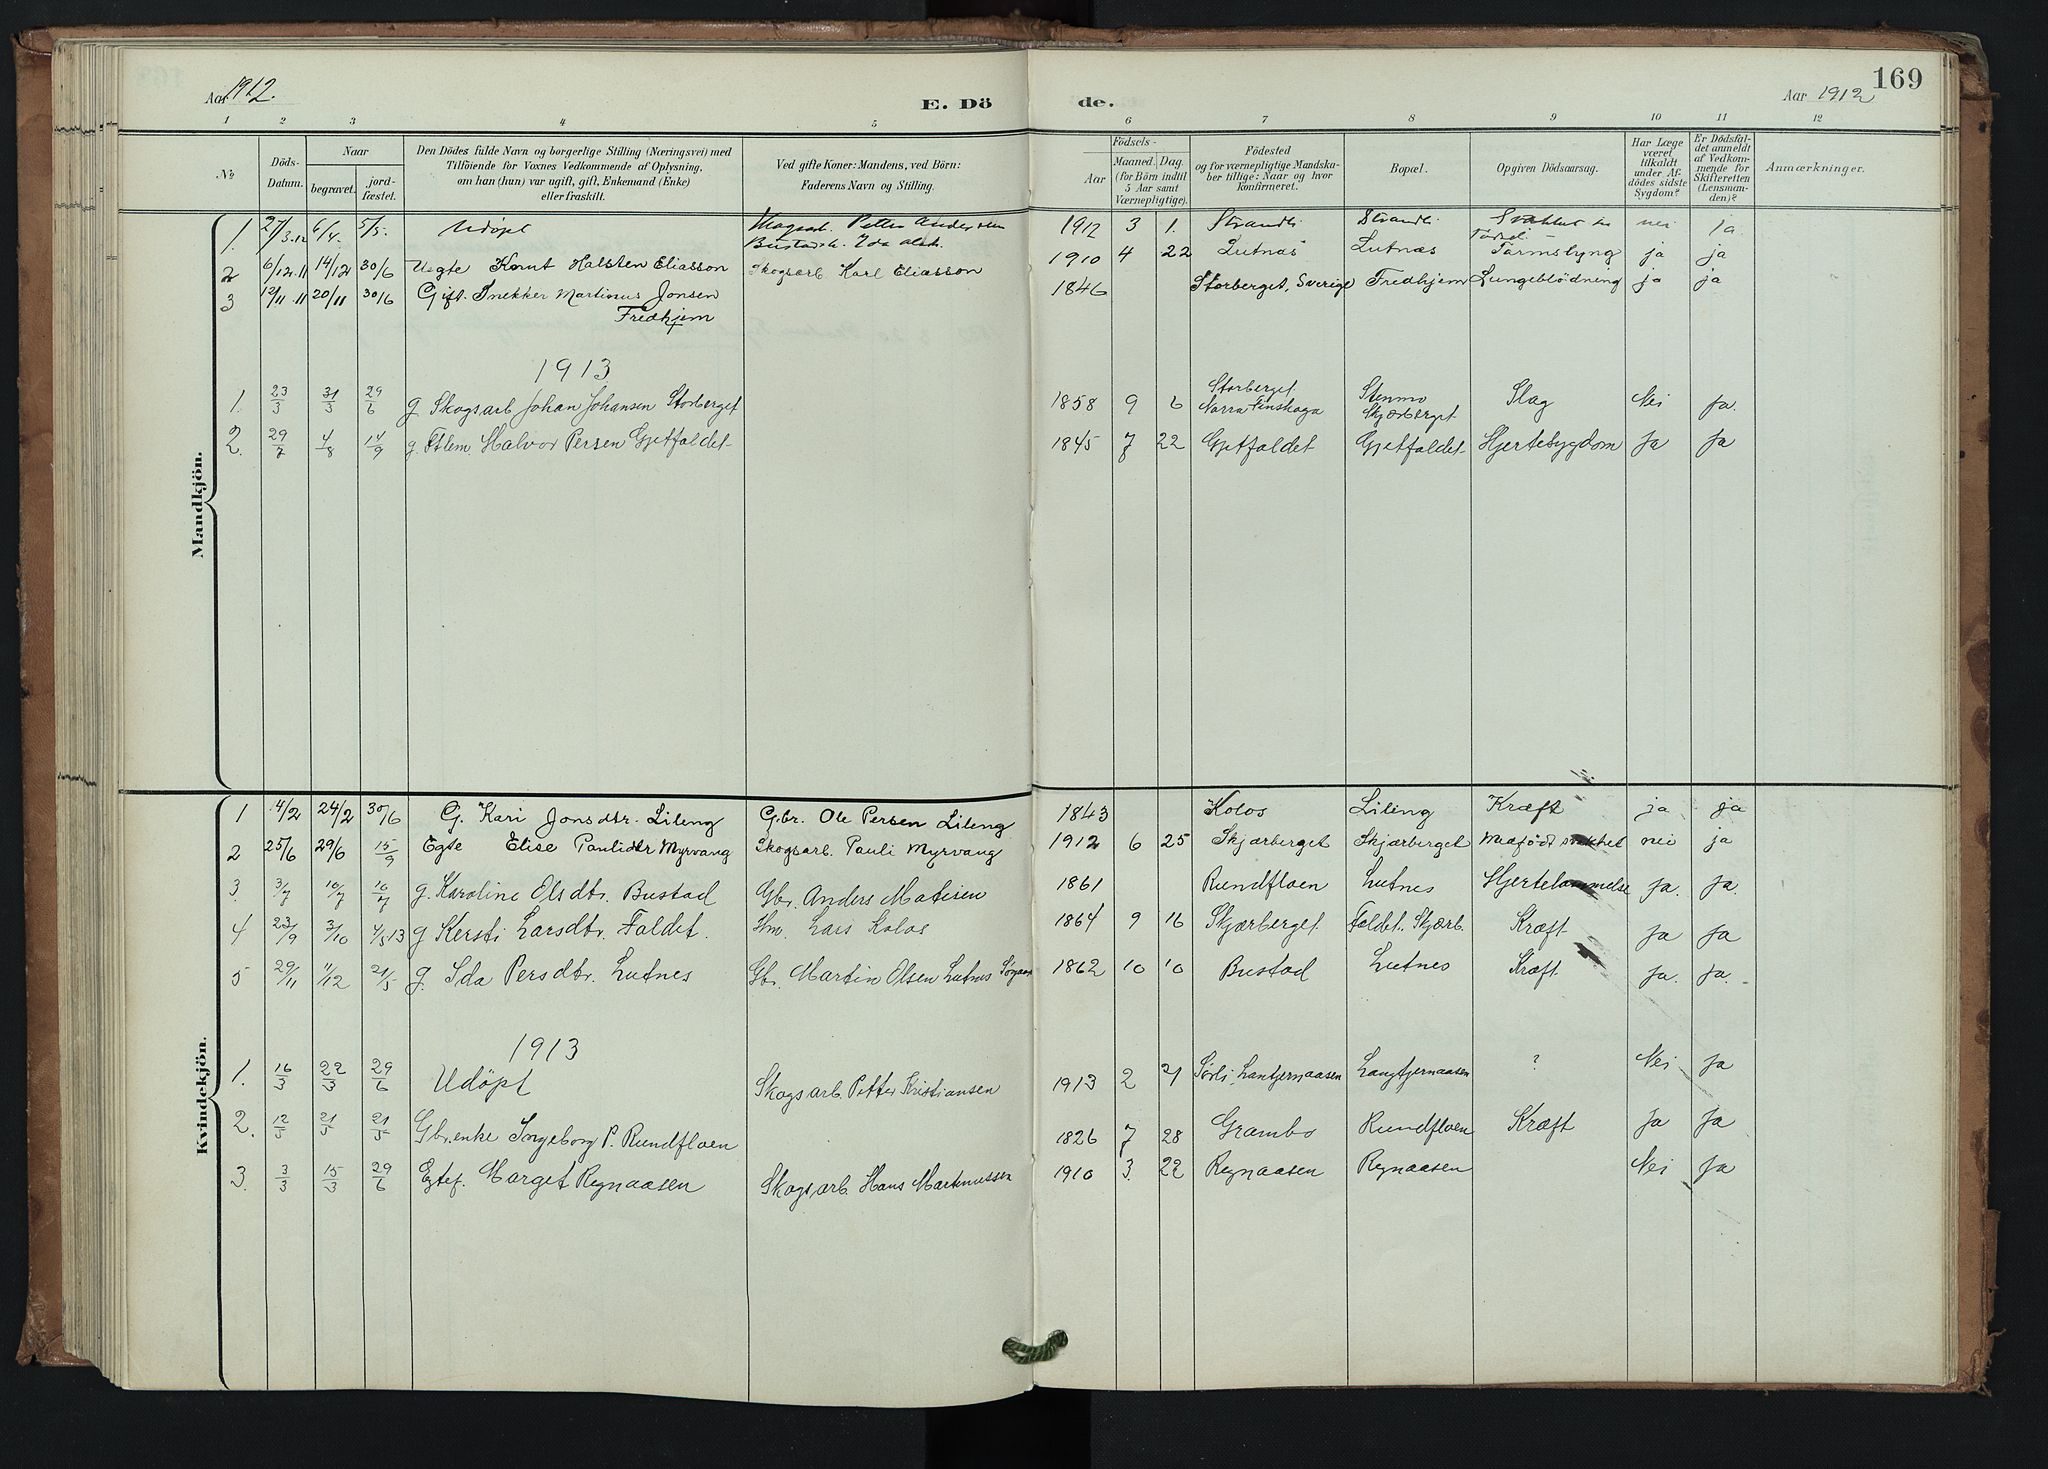 Aar 1912.
E. Dö
de.
Aar 1912
169
1 2 3 4 5 6 7 8 9 10 11 12
№
Döds-Datum.
Naar
begravet.
jord-fæstet.
Den Dödes fulde Navn og borgerlige Stilling (Næringsvei) med
Tilföiende for Voxnes Vedkommende af Oplysning,
om han (hun) var ugift, gift, Enkemand (Enke)
eller fraskilt.
Ved gifte Koner: Mandens, ved Börn:
Faderens Navn og Stilling.
Födsels-
Aar
Maaned. Dag.
(for Börn indtil
5 Aar samt
Værnepligtige).
Födested
og for værnepligtige Mandska-
ber tillige: Naar og hvor
konfirmeret.
Bopæl.
Opgiven Dödsaarsag.
Har Læge
været
tilkaldt
under Af-
dödes sidste
Sygdom?
Er Dödsfal-
det anmeldt
af Vedkom-
mende for
Skifteretten
(Lensman-
den)?
Anmærkninger.
Mandkjön.
1. 27/3.12 6/4. 5/5. Udöpt Skogsarb. Petter Andersen 1912 3 1. Strandli Strandli nei ja
Bustadsb. Ida
2 6/12.11 14/12 30/6 Uegte Knut Halsten Eliasson Skogsarb Karl Eliasson 1910 4 22 Lutnæs Lutnæs Tarmslyng ja ja
3 12/11.11 20/11 30/6 Gift. Snekker Martinus Jonsen 1846 Storberget, Sverige Fredhjem Lungeblödning ja ja
Fredhjem
1913
1. 23/3 31/3 29/6 g Skogsarb Johan Johansen Storberget 1858 9 6 Storberget Norra Finskoga Stenmo Skjærberget Slag Nei Ja.
2. 29/7 4/8 14/9 g. Halvor Persen Gjetfaldet 1845 7 22 Gjetfaldet Gjetfaldet Hjertesygdom Ja Ja
Kvindekjön.
1 14/2 24/2 30/6 G. Kari Jonsdtr. Lileng Gbr. Ole Persen Lileng 1843 Kolos Lileng Kræft ja ja
2 25/6 29/6 15/9 Egte Elise Paulidtr Myrvang Skogsarb. Pauli Myrvang 1912 6 25 Skjærberget Skjærberget Medfödt svakhet nei ja
3. 3/7 10/7 10/7 g. Karoline Olsdtr. Bustad Gbr. Anders Matisen 1861 Rundfloen Lutnes Hjertelammelse ja. Ja.
4 23/9 3/10 4/5 13 g Kersti Larsdtr. Faldet. Hm. Lars Kolos 1864 9 16 Skjærberget Faldet. Skjærb. Kræft Ja Ja
5 29/11 11/12 21/5 g. Ida Persdtr. Lutnes Gbr. Martin Olsen Lutnes 1862 10 10 Bustad Lutnes Kræft Ja. Ja.
1913
1. 16/3 22/3 29/6 Udöpt Skogsarb. Petter Kristiansen 1913 2 21 Sörli Lantjernaasen Langtjernaasen ? Nei Ja
2. 12/5 21/5 21/5 Gbr.enke Ingeborg P. Rundfloen 1826 7 28 Grambo Rundfloen Kræft Ja Ja
3. 3/3 15/3 29/6 Egtef. Marget Regnaasen Skogsarb. Hans Martinussen 1910 3 22 Regnaasen Regnaasen Nei Ja